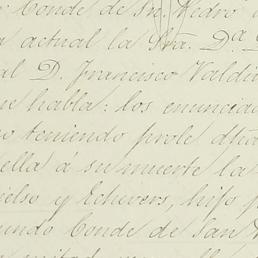 Conde de Sn. Pedro
actual la Sra. Da
al D. Francisco Valdi
ue habla: los enuncia
no teniendo prole dha
ella á su muerte la
ielso y Echvers, hijo
undo Conde de San